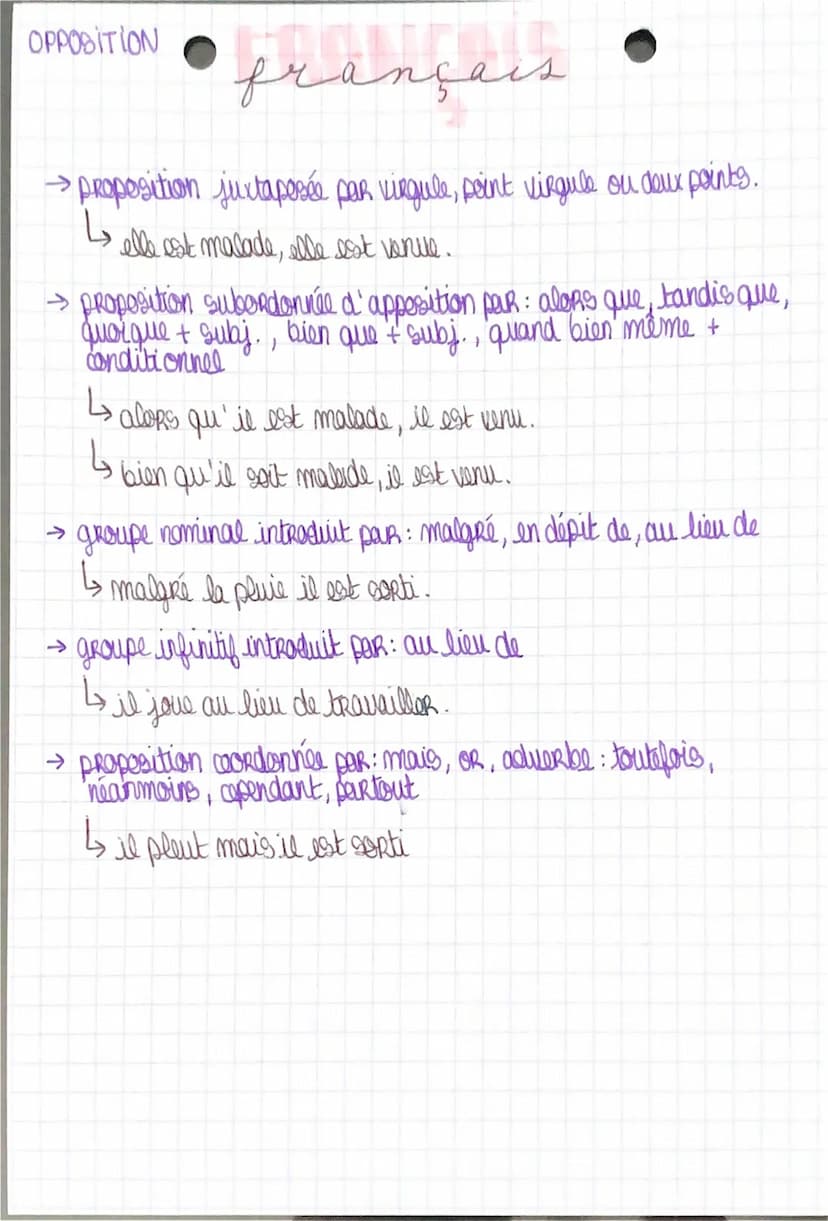 OPPOSITION
FRANÇAIS
français
→ proposition juxtaposée par virgule, point virgule ou deux points.
↳ elle est malade, elle est venue.
→ proposition subordonnée d'apposition par : alors que, tandis que,
quoique + subj., bien que + subj., quand bien même +
conditionnel
↳ alors qu'il est malade, il est venu.
↳ bien qu'il soit malade, il est venu.
→ groupe nominal introduit par : malgré, en dépit de, au lieu de
↳ malgré la pluie il est sorti.
→ groupe infinitif introduit par : au lieu de
↳ il joue au lieu de travailler.
→ proposition coordonnée par : mais, or, adverbe : toutefois,
néanmoins, cependant, partout
↳ il pleut mais il est sorti